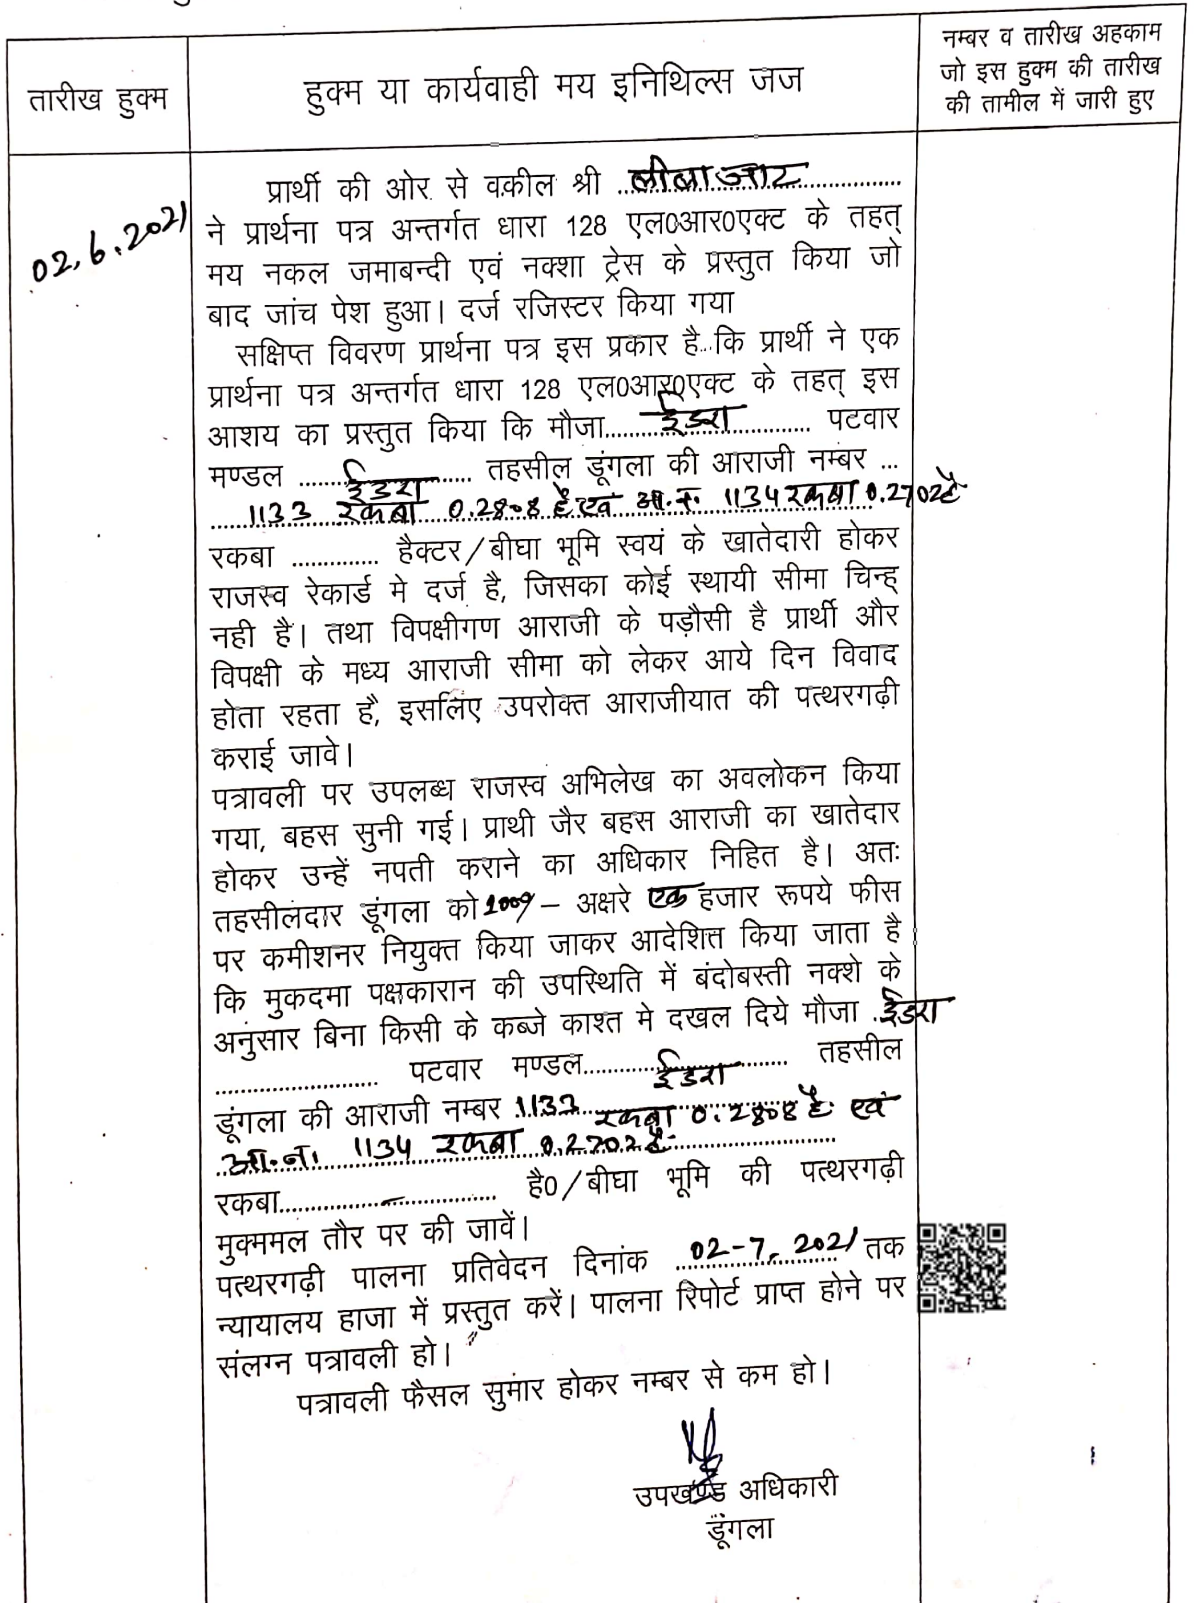 तारीख हुक्म
हुक्म या कार्यवाही मय इनिथिल्स जज
नम्बर व तारीख अहकाम
जो इस हुक्म की तारीख
की तामील में जारी हुए
02.6.2021
प्रार्थी की ओर से वकील श्री ..........................
ने प्रार्थना पत्र अन्तर्गत धारा 128 एल0आर0एक्ट के तहत्
मय नकल जमाबन्दी एवं नक्शा ट्रेस के प्रस्तुत किया जो
बाद जांच पेश हुआ। दर्ज रजिस्टर किया गया
सक्षिप्त विवरण प्रार्थना पत्र इस प्रकार है कि प्रार्थी ने एक
प्रार्थना पत्र अन्तर्गत धारा 128 एल0आर0एक्ट के तहत् इस
आशय का प्रस्तुत किया कि मौजा......ईडरा...... पटवार
मण्डल ......ईडरा...... तहसील डूंगला की आराजी नम्बर ...
1133 रकबा 0.2808 है एवं आ.न. 1134 रकबा 0.2702 है
रकबा ............. हैक्टर/बीघा भूमि स्वयं के खातेदारी होकर
राजस्व रेकार्ड मे दर्ज है, जिसका कोई स्थायी सीमा चिन्ह्
नही है। तथा विपक्षीगण आराजी के पड़ौसी है प्रार्थी और
विपक्षी के मध्य आराजी सीमा को लेकर आये दिन विवाद
होता रहता है, इसलिए उपरोक्त आराजीयात की पत्थरगढ़ी
कराई जावे।
पत्रावली पर उपलब्ध राजस्व अभिलेख का अवलोकन किया
गया, बहस सुनी गई। प्राथी जैर बहस आराजी का खातेदार
होकर उन्हें नपती कराने का अधिकार निहित है। अतः
तहसीलदार डूंगला को 1000/- अक्षरे एक हजार रूपये फीस
पर कमीशनर नियुक्त किया जाकर आदेशित्त किया जाता है
कि मुकदमा पक्षकारान की उपस्थिति में बंदोबस्ती नक्शे के
अनुसार बिना किसी के कब्जे काश्त मे दखल दिये मौजा .ईडरा
........................ पटवार मण्डल......ईडरा...... तहसील
डूंगला की आराजी नम्बर 1133 रकबा 0.2808 है एवं
आ.न. 1134 रकबा 0.2702 है
रकबा............................... है0/बीघा भूमि की पत्थरगढ़ी
मुक्ममल तौर पर की जावें।
पत्थरगढ़ी पालना प्रतिवेदन दिनांक 02-7.2021 तक
न्यायालय हाजा में प्रस्तुत करें। पालना रिपोर्ट प्राप्त होने पर
संलग्न पत्रावली हो।
पत्रावली फैसल सुमार होकर नम्बर से कम हो।
उपखण्ड अधिकारी
डूंगला